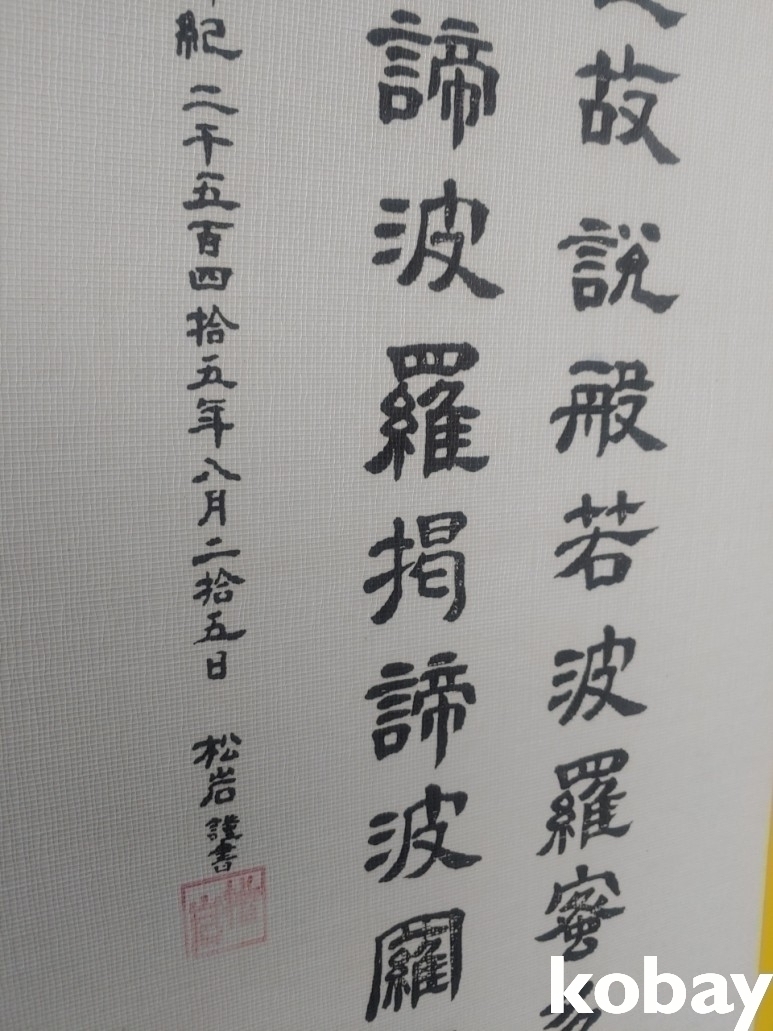 故說般若波羅蜜多
諦波羅揭諦波羅
紀二千五百四拾五年八月二拾五日 松岩謹書
kobay